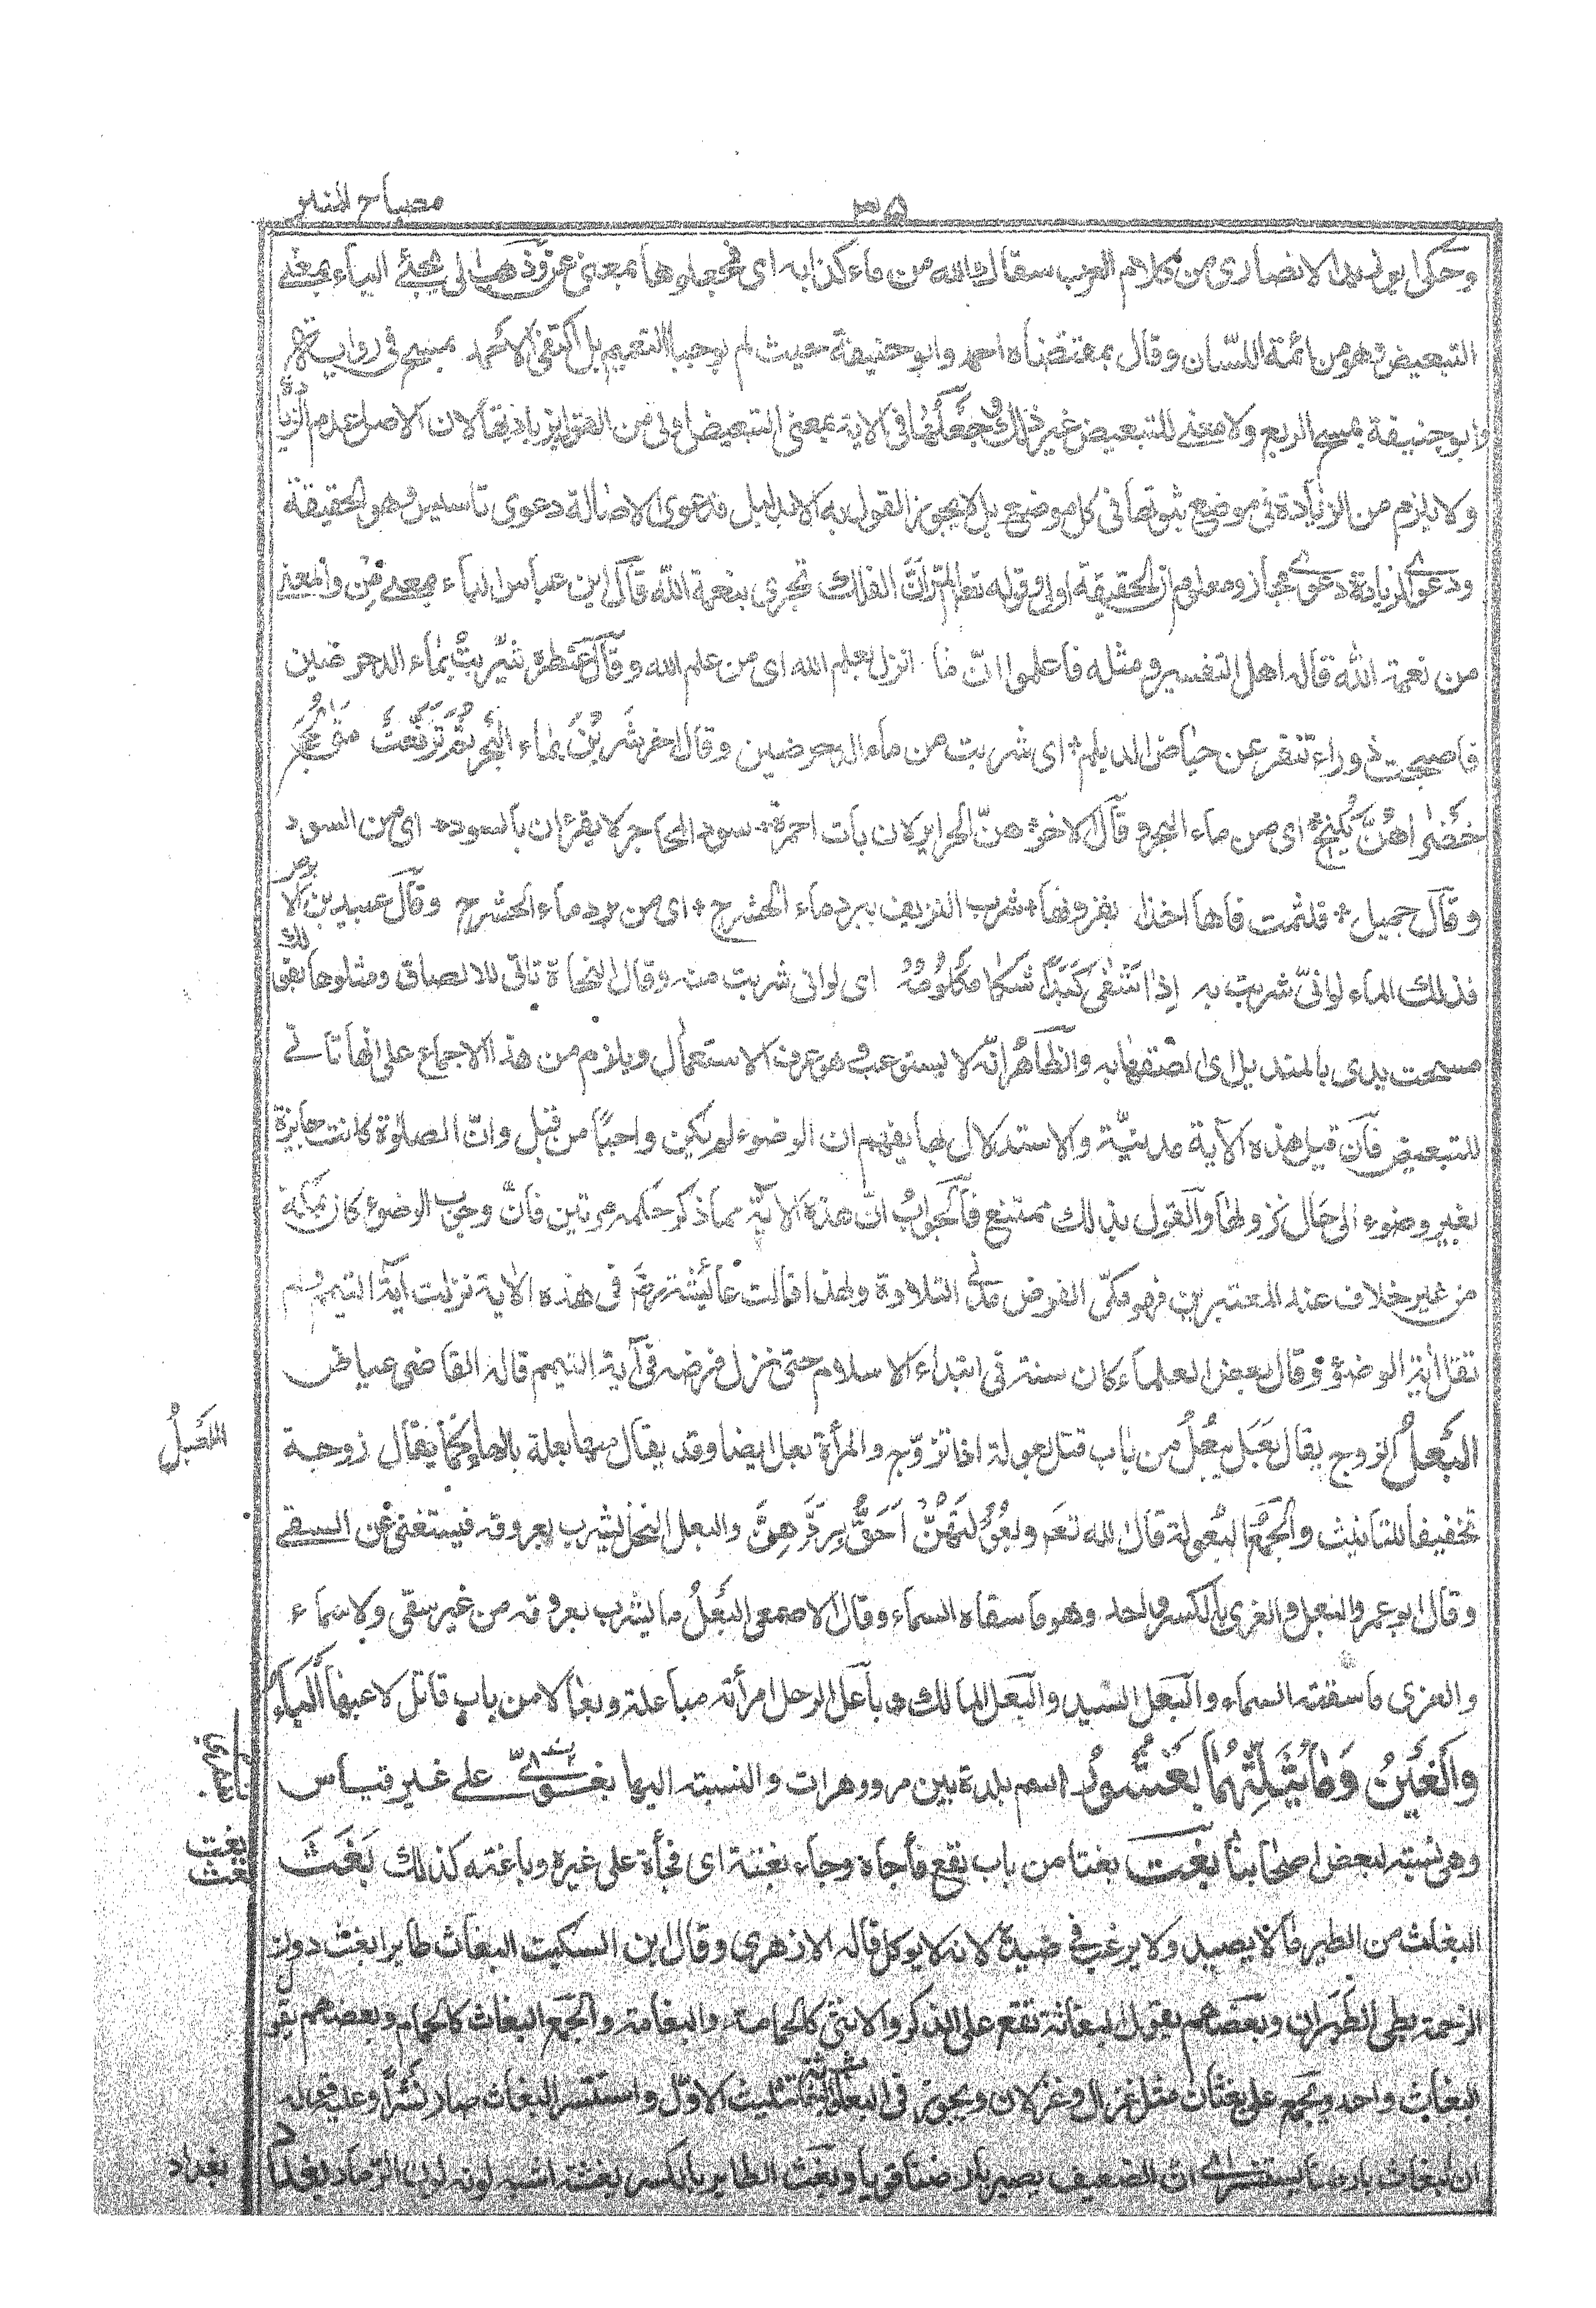 مصباح المنير
٣٥
وحكى ابو زيد الانصاري من كلام العرب سقاك الله من ماء كذا به اى فجعلوها بمعنى وذهب الى مجئ الباء بمعنى
التبعيض وهو من ائمة اللسان وقال بمقتضاه احمد وابو حنيفة حيث لم يوجبا التعميم بل اكتفى الاحمد بمسح فى رواية
وابو حنيفة بمسح الربع ولا معنى للتبعيض غير ذلك وجعلها فى الاية بمعنى التبعيض اولى من القول بزيادتها لان الاصل عدم الزيادة
ولا يلزم من الزيادة فى موضع ثبوتها فى كل موضع بل لا يجوز القول به الا بدليل فدعوى الاصالة دعوى تاسيس وهو الحقيقة
ودعوى الزيادة دعوى مجاز ومعلوم ان الحقيقة اولى وقوله تعالى الم تر ان الفلك تجرى بنعمة الله قال ابن عباس الباء بمعنى من والمعنى
من نعمة الله قاله اهل التفسير ومثله فاعلموا ان ما انزل بعلم الله اى من علم الله وقال عنتره شربت بماء الدحرضين
فاصبحت زوراء تنفر عن حياض الديلم اى شربت من ماء الدحرضين وقال اخر شربن بماء البحر ثم ترفعت متى لجج
خضر لهن نئيج اى من ماء البحر وقال الاخر هن الحراير لا ربات احمرة سود المحاجر لا يقرأن بالسور اى من السور
وقال جميل فلثمت فاها اخذا بقرونها شرب النزيف ببرد ماء الحشرج اى من برد ماء الحشرج وقال عبيد بن الابرص
فذلك الماء لو انى شربت به اذا شفى كبدا شكاء مكلومه اى لو انى شربت منه وقال النحاة تاتى للالصاق ومثلوها بقولك
مسحت يدى بالمنديل اى الصقتها به والظاهر انه لا يستوعب وهو عرف الاستعمال ويلزم من هذا الاجماع على انها تاتى
للتبعيض فان قيل هذه الآية مدنية والاستدلال بها يفهم ان الوضوء لم يكن واجبا من قبل وان الصلوة كانت جايزة
بغير وضوء الى حال نزولها والقول بذلك ممتنع فالجواب ان هذه الاية مما ذكر حكمه مرتين فان وجوب الوضوء كان بمكة
من غير خلاف عند المعتبرين فهو مكى الفرض مدنى التلاوة ولهذا قالت عائشة رض فى هذه الاية نزلت آية التيمم ولم
تقل اية الوضوء وقال بعض العلماء كان سنة فى ابتداء الاسلام حتى نزل فرضه فى آية التيمم قاله القاضى عياض
البعل الزوج يقال بعل يبعل من باب قتل بعولة اذا تزوج والمرأة بعل ايضا وقد يقال فيها بعلة بالهاء كما يقال زوجة
تحقيقا للتانيث والجمع البعولة قال الله تعـ وبعولتهن احق بردهن والبعل النخل يشرب بعروقه فيستغنى عن السقى
وقال ابو عمر والبعل والعذى بالكسر واحد وهو ما سقاه السماء وقال الاصمعى البعل ما يشرب بعروقه من غير سقى ولا سماء
والعذى ما سقته السماء والبعل السيد والبعل المالك وباعل الرجل امرأته مباعلة وبعالا من باب قاتل لاعبها الباء
والغين وما يثلثهما بغشور اسم بلدة بين مرو وهرات والنسبته اليها بغوى على غير قياس
وهى نسبته لبعض اصحابنا بغت بغتا من باب نفع فاجاه وجاء بغتة اى فجأة على غيره وباغته كذلك بغث
البغاث من الطير ما لا يصيد ولا يرغب فى صيده لانه لا يوكل قاله الازهرى وقال ابن السكيت البغاث طاير ابغث دون
الرخمة بطى الطيران وبعضهم يقول البغاثة تقع على الذكر والانثى كالحمامة والنعامة والجمع البغاث كالحمام وبعضهم يقول
البغاث واحد ويجمع على بغثان مثل غزال وغزلان ويجوز فى البغاث تثليث الاول واستنسر البغاث صار نسرا وعليه قوله
ان البغاث بارضنا يستنسر اى ان الضعيف يصير بارضنا قويا وبغث الطاير بالكسر بغثة اشبه لونه لون الرماد بغداد
البعل
بغت
بغث
بغداد